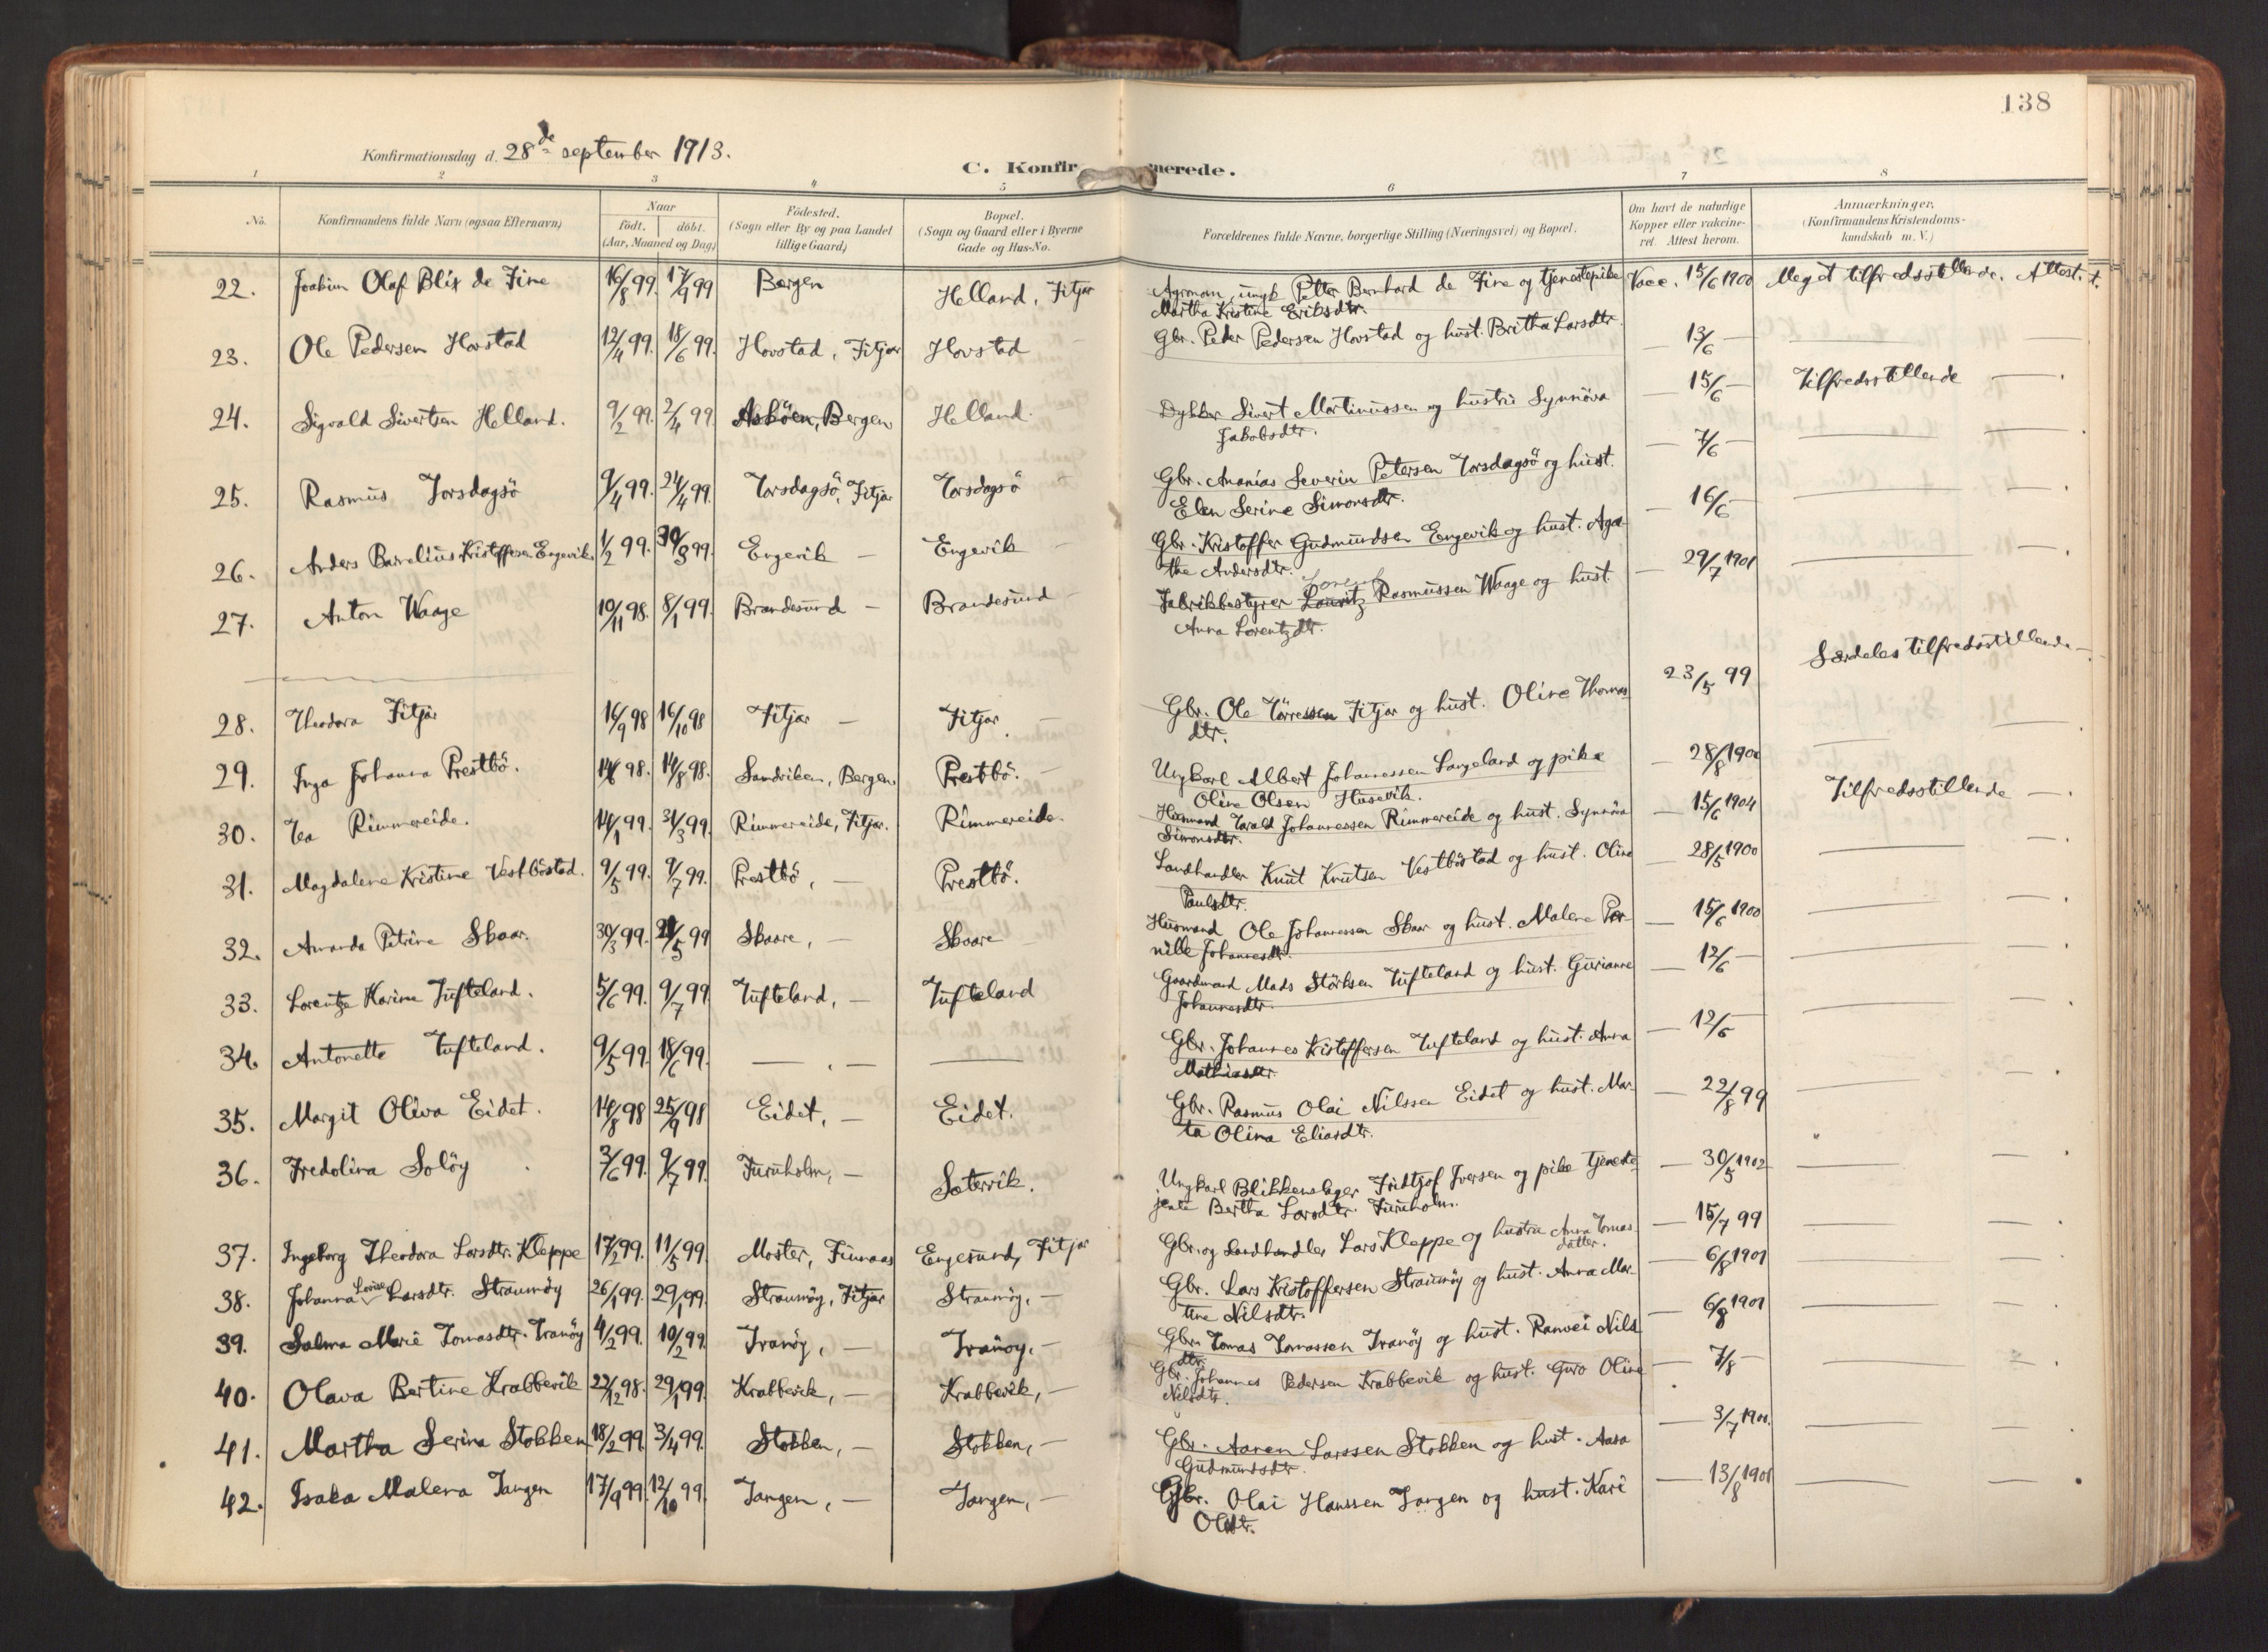 138
Konfirmationsdag d. 28de september 1913.
C. Konfir merede.
1 2 3 4 5 6 7 8
No. Konfirmandens fulde Navn (ogsaa Efternavn) Naar födt. döbt. (Aar, Maaned og Dag) Födested. (Sogn eller By og paa Landet tillige Gaard) Bopæl. (Sogn og Gaard eller i Byerne Gade og Hus-No. Forældrenes fulde Navne, borgerlige Stilling (Næringsvei) og Bopæl. Om havt de naturlige Kopper eller vakcineret. Attest herom. Anmærkninger. (Konfirmandens Kristendomskundskab m. V.)
22. Joakim Olaf Blix de Fine 16/8 99. 17/9 99 Bergen Helland, Fitjar Agronom, ungk. Petter Bernhard de Fine og tjenestepike Vacc. 15/6 1900 Meget tilfredsstillende. Attest.
Martha Kristine Eriksdtr.
23. Ole Pedersen Hovstad 12/4 99. 18/6 99. Hovstad, Fitjar Hovstad Gbr. Peder Pedersen Hovstad og hust. Britha Larsdtr. — 13/6 — —
24. Sigvald Sivertsen Helland. 9/2 99. 2/4 99. Asköen, Bergen Helland. Dykker Sivert Martinussen og hustru Synnöva — 15/6 — Tilfredsstillende —.
Jakobsdtr.
25. Rasmus Torsdagsö 9/4 99. 24/4 99. Torsdagsö, Fitjar Torsdagsö Gbr. Ananias Severin Petersen Torsdagsö og hust. — 7/6 — — —.
Elen Serine Simonsdtr.
26. Anders Barrelius Kristoffersen Engevik 1/2 99. 30/3 99. Engevik — Engevik — Gbr. Kristoffer Gudmundsen Engevik og hust. Aga- — 16/6 — — —.
the Andersdtr.
27. Anton Waage 10/11 98. 8/1 99. Brandesund — Brandesund — Fabrikbestyrer Lauritz Rasmussen Waage og hust. — 29/7 1901 — —.
Anna Lorentzdtr.
28. Theodora Fitjar 16/9 98 16/10 98 Fitjar — Fitjar. — Gbr. Ole Törressen Fitjar og hust. Oline Thomas- 23/5 99 Særdeles tilfredsstillende —.
dtr.
29. Inga Johanna Prestbö. 14/6 98. 14/8 98. Sandviken, Bergen Prestbö. — Ungkarl Albert Johannessen Langeland og pike — 28/8 1900 — —
Oline Olsen Husevik.
30. Tea Rimmereide. 14/1 99. 31/3 99. Rimmereide, Fitjar. Rimmereide. Husmand Harald Johannessen Rimmereide og hust. Synnöva — 15/6 1904 Tilfredsstillende —.
Simonsdtr.
31. Magdalene Kristine Vestböstad. 9/5 99. 9/7 99. Prestbö, — Prestbö. Landhandler Knut Knutsen Vestböstad og hust. Oline — 28/5 1900 — —.
Paulsdtr.
32. Amanda Petrine Skaar. 30/3 99. 21/5 99 Skaare, — Skaare Husmand Ole Johannessen Skaar og hust. Malene Per- — 15/6 1900 — —.
nille Johannesdtr.
33. Lorentze Karine Tufteland. 5/6 99. 9/7 99. Tufteland, — Tufteland Gaardmand Mads Störksen Tufteland og hust. Gurianne — 12/6 — — —.
Johannesdtr.
34. Antonette Tufteland. 9/5 99. 18/6 99. — . — — Gbr. Johannes Kristoffersen Tufteland og hust. Anna — 12/6 — — —.
Mathiasdtr.
35. Margit Oliva Eidet. 14/8 98 25/9 98 Eidet, — Eidet. Gbr. Rasmus Olai Nilssen Eidet og hust. Mar- — 22/8 99 — —.
ta Olina Eliasdtr.
36. Fredolina Solöy 3/6 99. 9/7 99. Furuholm, — Sætervik. Ungkarl Blikkenslager Fridtjof Iversen og pike tjeneste- — 30/5 1902 — —.
jente Bertha Larsdtr. Furuholm.
37. Ingeborg Theodora Larsdtr. Kleppe 17/2 99. 11/5 99. Moster, Finnaas Engesund, Fitjar Gbr. og Landhandler Lars Kleppe og hustru Anna Tomas- — 15/7 99 — —.
datter.
38. Johanna Lovise Larsdtr. Straumöy 26/1 99. 29/1 99. Straumöy, Fitjar Straumöy, — Gbr. Lars Kristoffersen Straumöy og hust. Anna Mar- — 6/8 1901 — —.
tine Nilsdtr.
39. Salma Marie Tomasdtr. Ivanöy 4/2 99. 10/2 99. Ivanöy, — Ivanöy, — Gbr. Tomas Tomassen Ivanöy og hust. Ranvei Nils- — 6/8 1901 — —.
dtr.
40. Olava Bertine Krabbevik 22/12 98. 29/1 99. Krabbevik, — Krabbevik, — Gbr. Johannes Pedersen Krabbevik og hust. Guro Oline — 7/8 — — —.
Nilsdtr.
41. Martha Serina Stokken 18/2 99. 3/4 99. Stokken, — Stokken, — Gbr. Aaren Larssen Stokken og hust. Aasa — 3/7 1900. — —
Gudmundsdtr.
42. Isaka Malena Tangen 17/9 99. 12/10 99. Tangen, — Tangen, — Gbr. Olai Hanssen Tangen og hust. Kari — 13/8 1901 — —.
Olsdtr.